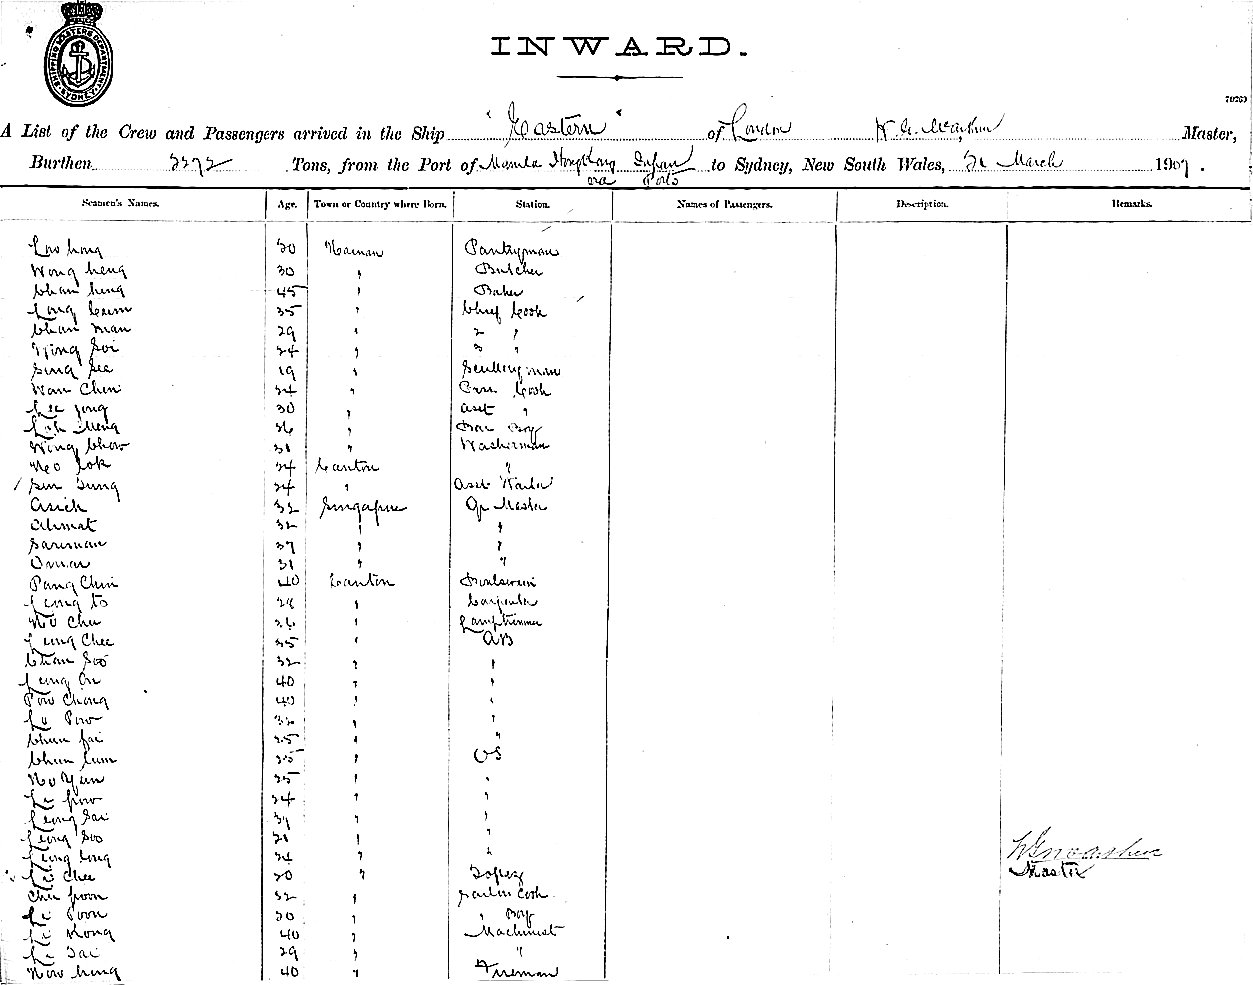 SHIPPING MASTERS DEPARTMENT SYDNEY
INWARD.
70263
A List of the Crew and Passengers arrived in the Ship "Eastern" of London W. G. McArthur Master,
Burthen 2272 Tons, from the Port of Manila Hong Kong Japan to Sydney, New South Wales, 21 March 1907.
via Ports
Seamen's Names. Age. Town or Country where Born. Station. Names of Passengers. Description. Remarks.
Low hong 30 Hainan Pantryman
Wong heng 30 " Butcher
Chan hing 45 " Baker
35 " Chief Cook
Chan man 29 " 2 "
Wing Soi 24 " 3 "
Sing See 19 " Scullery man
Wan Chin 34 " Crew Cook
Lee yong 30 " asst "
" Bar Boy
Wing Chow " Washerman
34 Canton "
Sun Sung 24 " Asst Waiter
Singapore Qr Master
Ahmat 32 " "
Sariman 37 " "
Omar 31 " "
Pang Chin 40 Canton Boatswain
Leong to " Carpenter
Ho Chu " Lamptrimmer
Leung Chee 35 " AB
Chan Soo 32 " "
Leung On 40 " "
Pow Chong 40 " "
Lee Pow 32 " "
Chun fai 25 " "
Chun lum 25 " OS
Ho Yun 25 " "
Le pow 24 " "
Leong Sai " "
Leong Soo " "
Leong long 24 " "
Le Chee 30 "
Chee poon 32 " Sailors Cook
Le Poon 30 " " Boy
Le Kong 40 " Machinist
Le Sai 29 " "
How hing 40 " Fireman
W G McArthur
Master